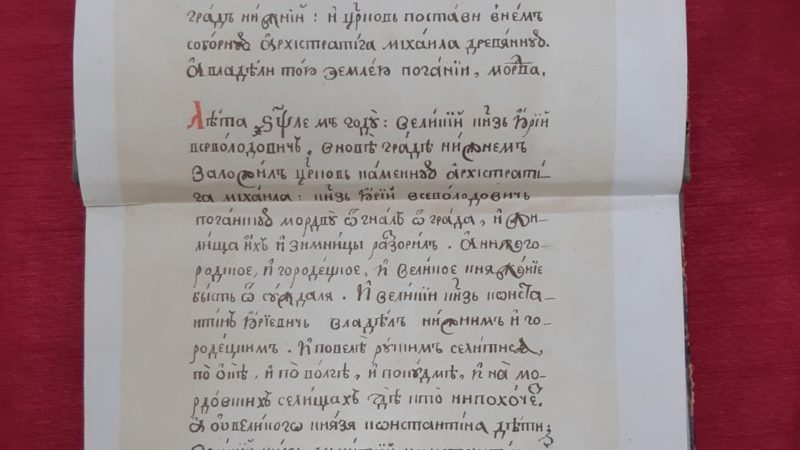 градъ нижнїй : и црковь постави внемъ
соборнꙋю архїстратїга міхаила древѧннꙋю.
а владѣли тою землею поганїи, мордва.
Лѣта ҂ѕѱле мъ годꙋ : великїй кнзь юрїй
всеволодовичъ, вновѣ градѣ нижнемъ
заложилъ црковь каменнꙋю архїстратї
га міхаила : кнзь юрїй всеволодовичь
поганꙋю мордвꙋ ѿгналъ ѿ града, и жи
лища ихъ и зимницы разорилъ . а нижего-
родцкое, и городецкое, и великое кнѧженїе
бысть ѿ сꙋждалѧ . И великїи кнзь констан
тинъ юрїевичь владѣлъ нижнимъ и го-
родецкимъ . и повелѣ рꙋскимъ селитисѧ,
по окѣ, и по волгѣ, и по кꙋдмѣ, и на мо-
рдовскихъ селищахъ гдѣ кто нипохоче.
а оу великого кнѧзѧ констѧнтина дѣти;